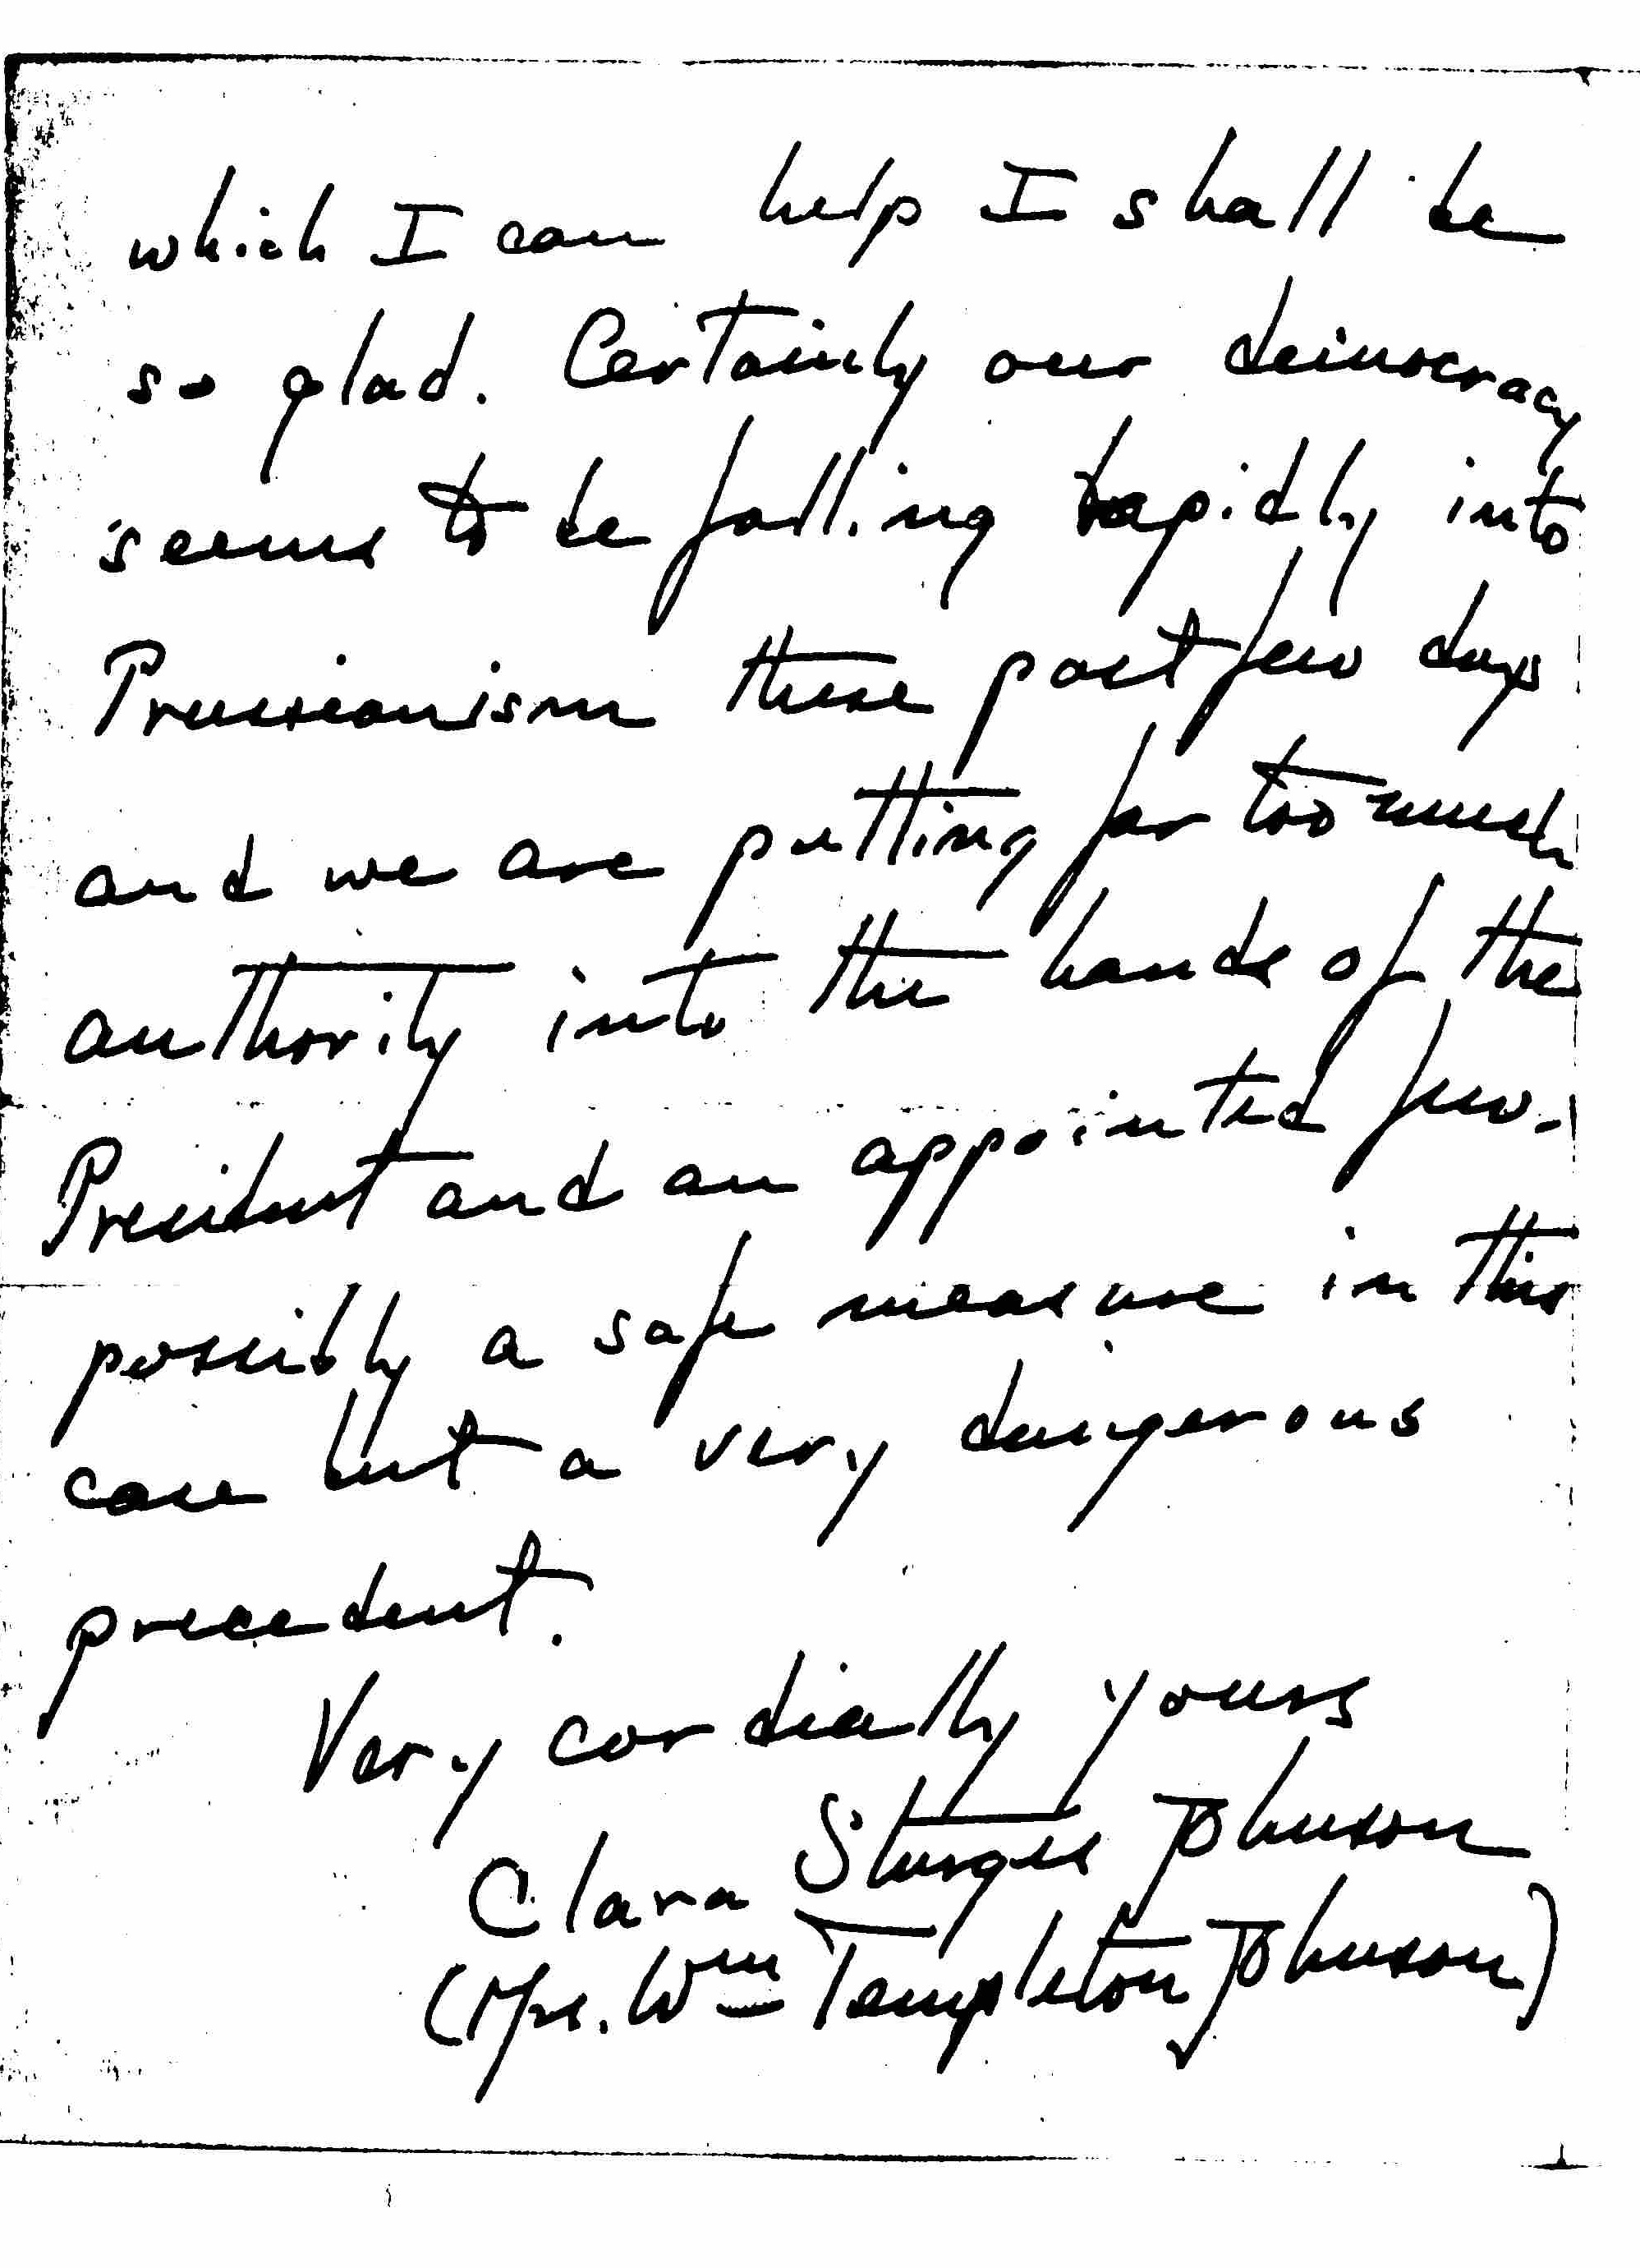 which I can help I shall be
so glad. Certainly our democracy
seems to be falling rapidly into
Prussianism these past few days
and we are putting far too much
authority into the hands of the
President and an appointed few -
possibly a safe measure in this
case but a very dangerous
precedent.
Very cordially yours
Clara Sturges Johnson
(Mrs. Wm Templeton Johnson)